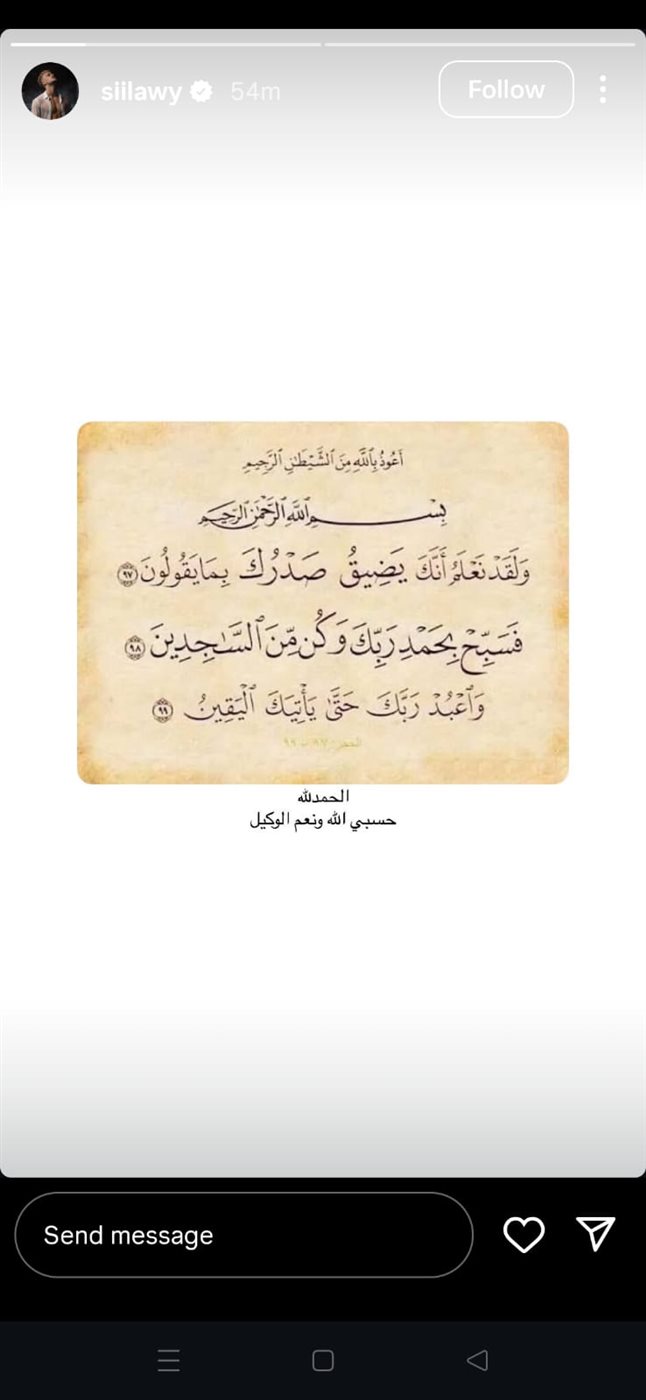 siilawy 54m Follow
أَعُوذُ بِٱللَّهِ مِنَ ٱلشَّيْطَٰنِ ٱلرَّجِيمِ
بِسْمِ ٱللَّهِ ٱلرَّحْمَٰنِ ٱلرَّحِيمِ
وَلَقَدْ نَعْلَمُ أَنَّكَ يَضِيقُ صَدْرُكَ بِمَا يَقُولُونَ ٩٧
فَسَبِّحْ بِحَمْدِ رَبِّكَ وَكُن مِّنَ ٱلسَّٰجِدِينَ ٩٨
وَٱعْبُدْ رَبَّكَ حَتَّىٰ يَأْتِيَكَ ٱلْيَقِينُ ٩٩
الحجر: ٩٧ - ٩٩
الحمدلله
حسبي الله ونعم الوكيل
Send message